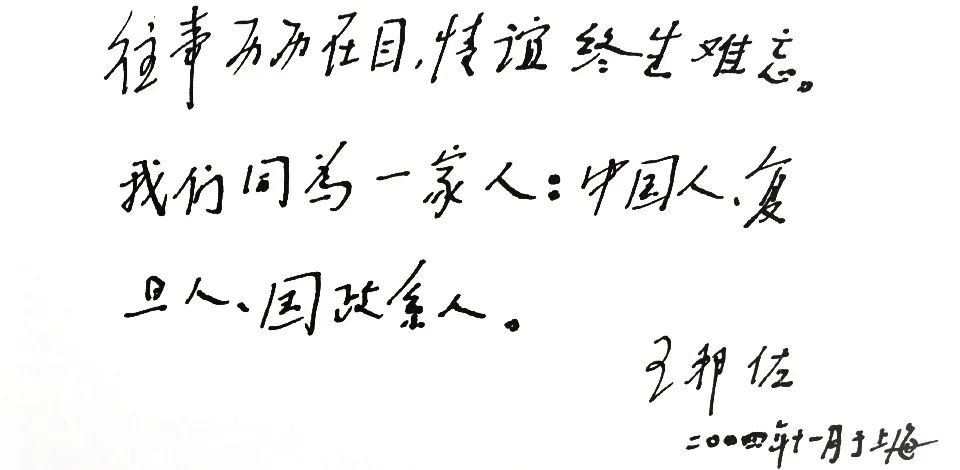 往事历历在目,情谊终生难忘。
我们同为一家人:中国人、复
旦人、国政系人。
王邦佐
二〇〇四年十一月于上海